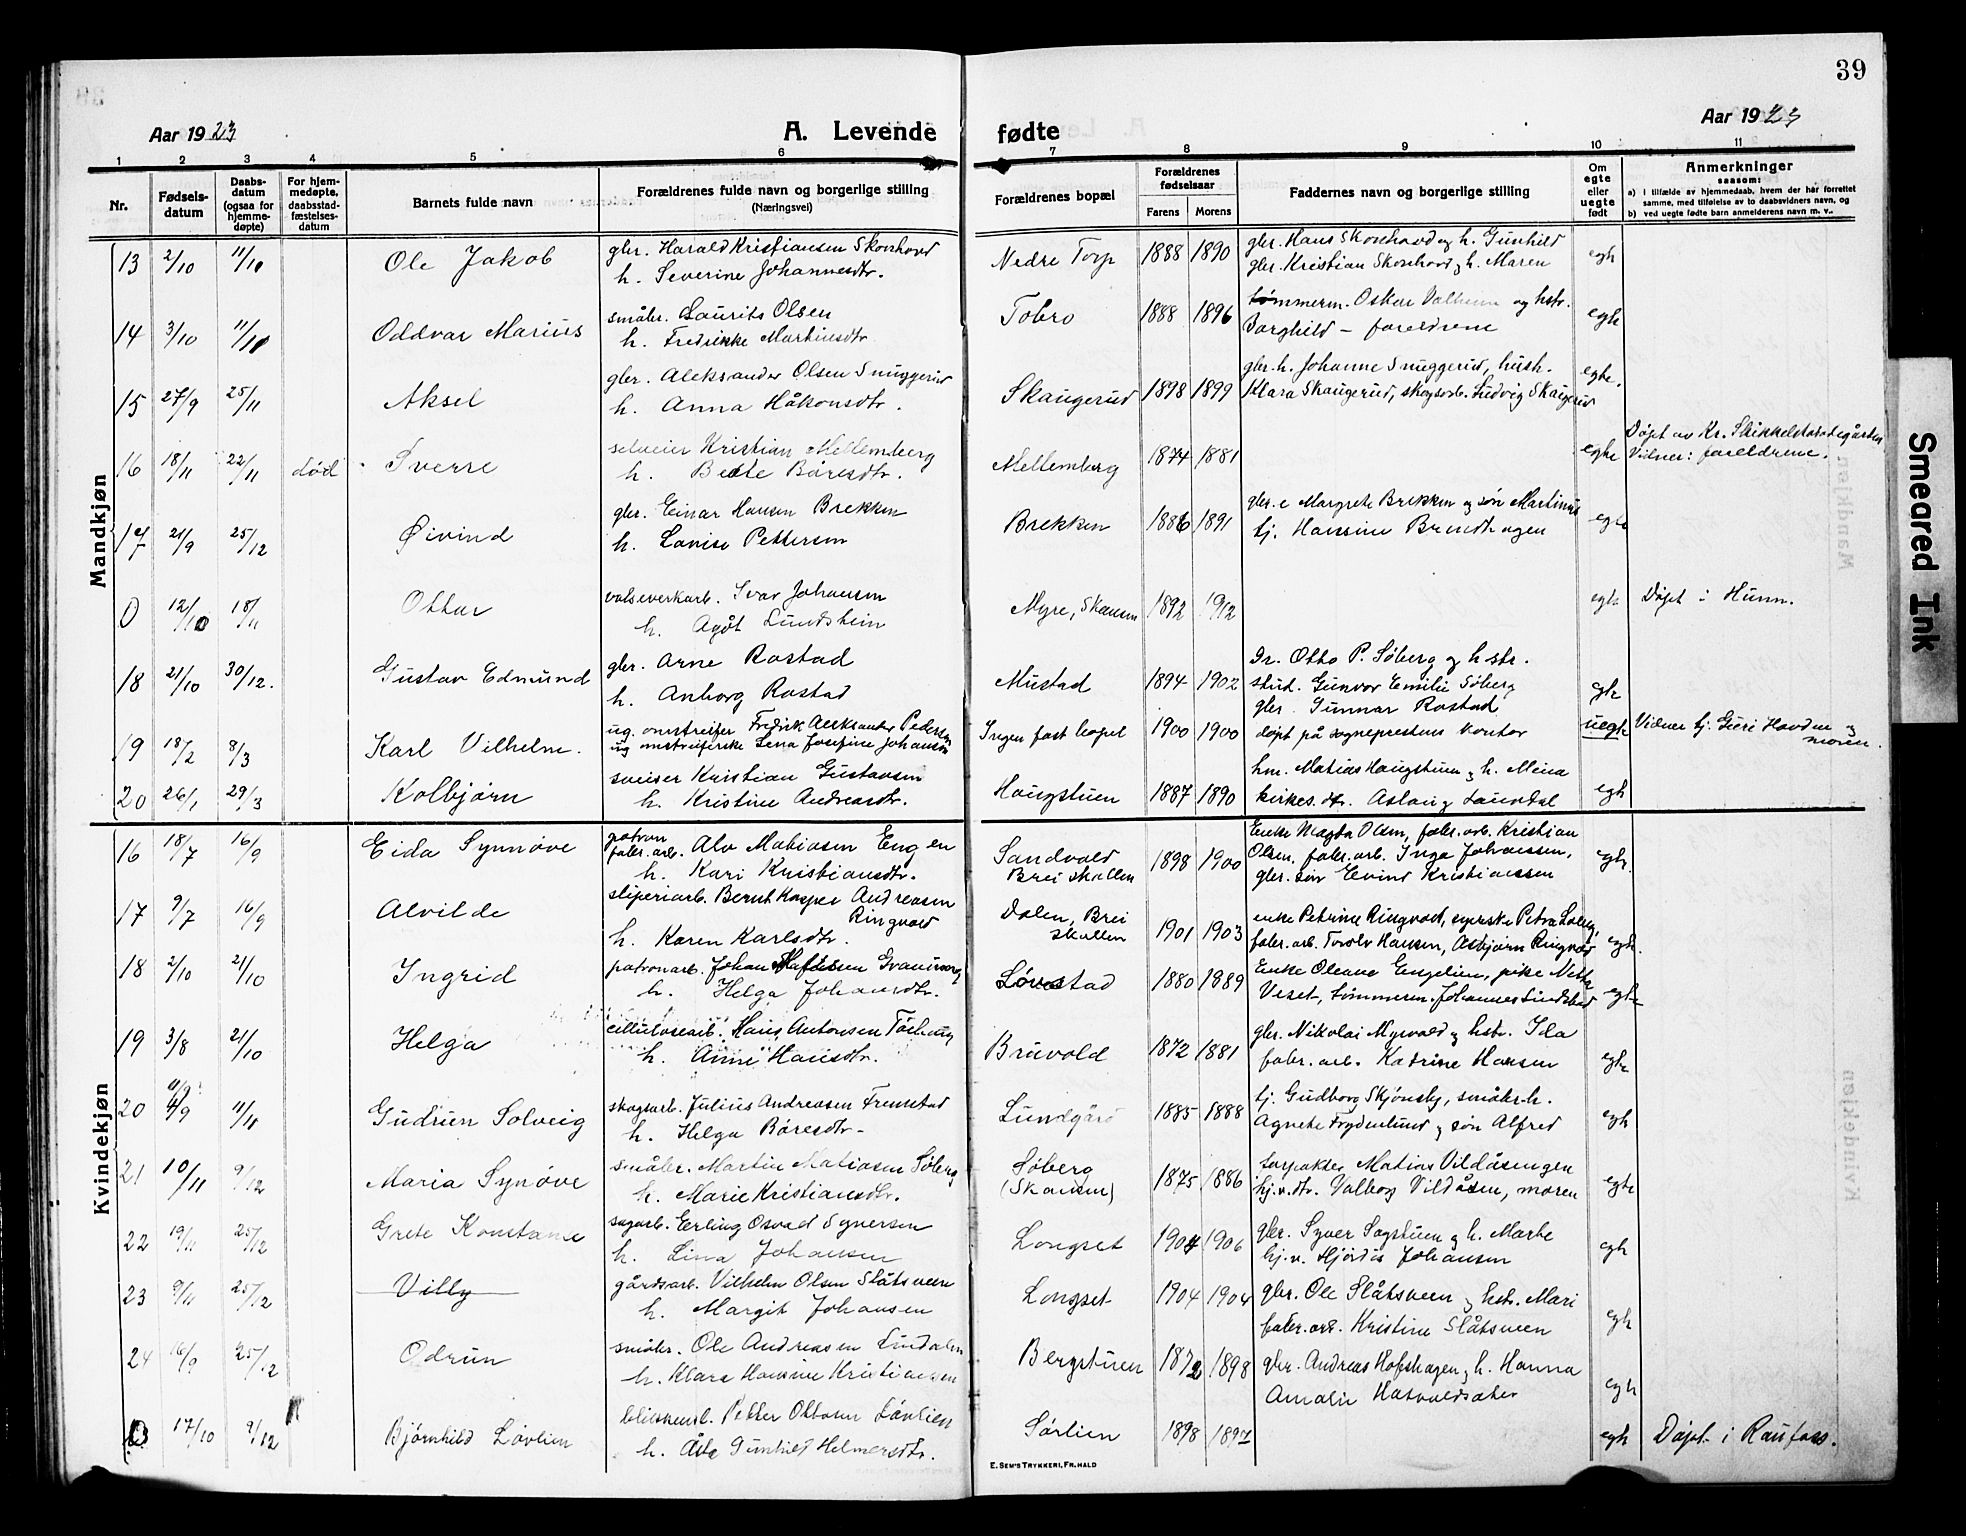 39
Aar 1923
A. Levende fødte
Aar 1923
1 2 3 4 5 6 7 8 9 10 11
Nr.
Fødsels-
datum
Daabs-
datum
(ogsaa for
hjemme-
døpte)
For hjem-
medøpte,
daabsstad-
fæstelses-
datum
Barnets fulde navn
Forældrenes fulde navn og borgerlige stilling
(Næringsvei)
Forældrenes bopæl
Forældrenes
fødselsaar
Farens Morens
Faddernes navn og borgerlige stilling
Om
egte
eller
uegte
født
Anmerkninger
saasom:
a) i tilfælde av hjemmedaab, hvem der har forrettet
samme, med tilføielse av to daabsvidners navn, og
b) ved uegte fødte barn anmelderens navn m. v..
Mandkjøn
13 2/10 11/10 Ole Jakob
gbr. Harald Kristiansen Skonhovd
h. Severine Johannesdtr.
Nedre Torp 1888 1890
gbr. Hans Skonhovd og h. Gunhild
gbr. Kristian Skonhovd og h. Maren
egte
14 3/10 11/11 Oddvar Marius
småbr. Laurits Olsen
h. Fredrikke Martinsdtr.
Tobro 1888 1896
tømmerm. Oskar Valheim og hstr.
Borghild – foreldrene
egte
15 27/9 25/11 Aksel
gbr. Aleksander Olsen Snuggerud
h. Anna Håkonsdtr.
Skaugerud 1898 1899
gbr. h. Johanne Snuggerud, hush.
Klara Skaugerud, skogsarb. Ludvig Skaugerud
egte.
16 18/11 22/11 død Sverre
selveier Kristian Mellemberg
h. Beate Båresdtr.
Mellemberg 1874 1881
egte
Døpt av Kr. Skikkelstadødegården
Vidner: foreldrene.
17 21/9 25/12 Øivind
gbr. Einar Hansen Brekken
h. Lovise Pettersen
Brekken 1886 1891
gbr. e Margrete Brekken og søn Martinus
tj. Hansine Brendhagen
egte
0 12/10 18/11 Ottar
valseverkarb. Ivar Johansen
h. Agöt Lundstein
Myre, Skansen 1892 1912
egte
Døpt i Hunn.
18 21/10 30/12. Gustav Edmund
gbr. Arne Rostad
h. Anborg Rostad
Mustad 1894 1902
Dr. Otto P. Söberg og hstr.
stud. Gunvor Emilie Söberg
gbr. Gunnar Rostad
egte
19 18/2 8/3 Karl Vilhelm.
ug. omstreifer Fredrik Aleksander Pedersen
ug omstreiferske Lena Josefine Johansen
Ingen fast bopel 1900 1900
døpt på sogneprestens kontor
uegte
Vidner tj. Guri Hovden og
moren.
20 26/1 29/3 Kolbjørn
sveiser Kristian Gustavsen
h. Kristine Andreasdtr.
Haugstuen 1887 1890
hm. Matias Haugstuen og h. Mina
kirkes. dtr. Aslaug Laundal
egte
Kvindekjøn
16 18/7 16/9 Eida Synnøve
patron
fabr. arb. Alv Matiasen Engen
h. Kari Kristiansdtr.
Sandvold
Breiskallen
1898 1900
Enke Magda Olsen, fabr. arb. Kristian
Olsen, fabr. arb. Inga Johanssen,
gbr. søn Eivind Kristianssen
egte.
17 9/7 16/9 Alvilde
sliperiarb. Bernt Kasper Andreasen
Ringvold
h. Karen Karlsdtr.
Dalen, Brei
skallen
1901 1903
enke Petrine Ringvold, syerske Petra Loberg,
fabr. arb. Torolv Hansen, Asbjørn Ringvold
egte.
18 2/10 21/10 Ingrid
patronarb. Johan
h. Helga Johansdtr.
Løvstad 1880 1889
Enke Oleane Engelien, pike Netta
Veset, tømmerm. Johannes Lindstad
egte
19 3/8 21/10 Helga
cellulosearb. Hans Antonsen Töihaug
h. Anne Hansdtr.
Bruvold 1872 1881
gbr. Nikolai Myrvold og hstr. Ida
fabr. arb. Katrine Hansen
egte
20 11/9 11/11 Gudrun Solveig
skogsarb. Julius Andreasen Fremstad
h. Helga Båresdtr.
Lundgård 1885 1888
tj. Gudborg Skjønsby, småbr. h.
Agnete Frydenlund og søn Alfred
egte
21 10/11 9/12 Maria Synøve
småbr. Martin Matiasen Söberg
h. Marie Kristiansdtr.
Söberg
(Skansen)
1875 1886
forpakter Matias Vildåsengen
hj. v. dtr. Valborg Vildåsen, moren
egte
22 19/11 25/12 Grete Konstanse
sagarb. Erling Osvald Syversen
h. Lina Johansen
Longset 1904 1906
gbr. Syver Sagstuen og h. Marte
hj. v. Hjørdis Johansen
egte
23 9/11 25/12 Villy
gårdsarb. Vilhelm Olsen Slåtsveen
h. Margit Johansen
Longset 1904 1904
gbr. Ole Slåtsveen og hstr. Mari
fabr. arb. Kristine Slåtsveen
egte
24 16/9 25/12 Odrun
småbr. Ole Andreasen Lindalen
h. Klara Hansine Kristiansen
Bergstuen 1872 1898
gbr. Andreas Hofshagen og h. Hanna
Amalie Hatvoldsæter
egte
0 17/10 9/12 Bjørnhild Løvlien
blikkensl. Petter Ottosen Løvlien
h. Åsta Gunhild Helmersdtr.
Sørlien 1898 1897
egte
Døpt i Raufoss.
E. SEM'S TRYKKERI, FR.HALD
Smeared Ink